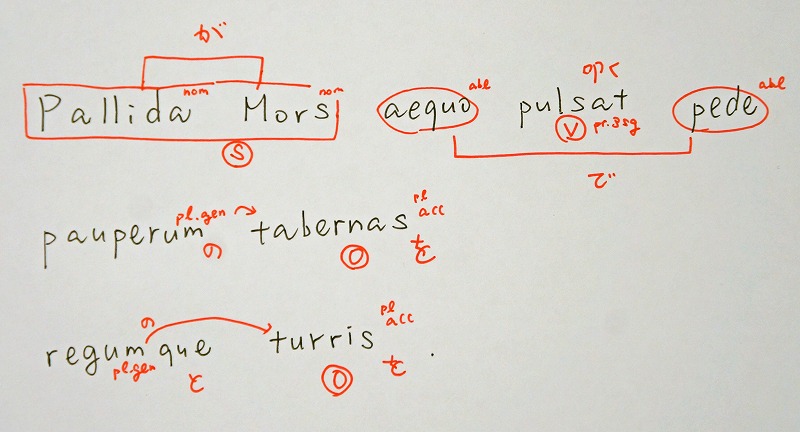 が
Pallida nom Mors nom aequo abl 叩く pulsat pede abl
S V pr.3sg で
pl.gen pl acc
pauperum tabernas
の O を
の pl acc
regumque turris.
pl.gen と O を